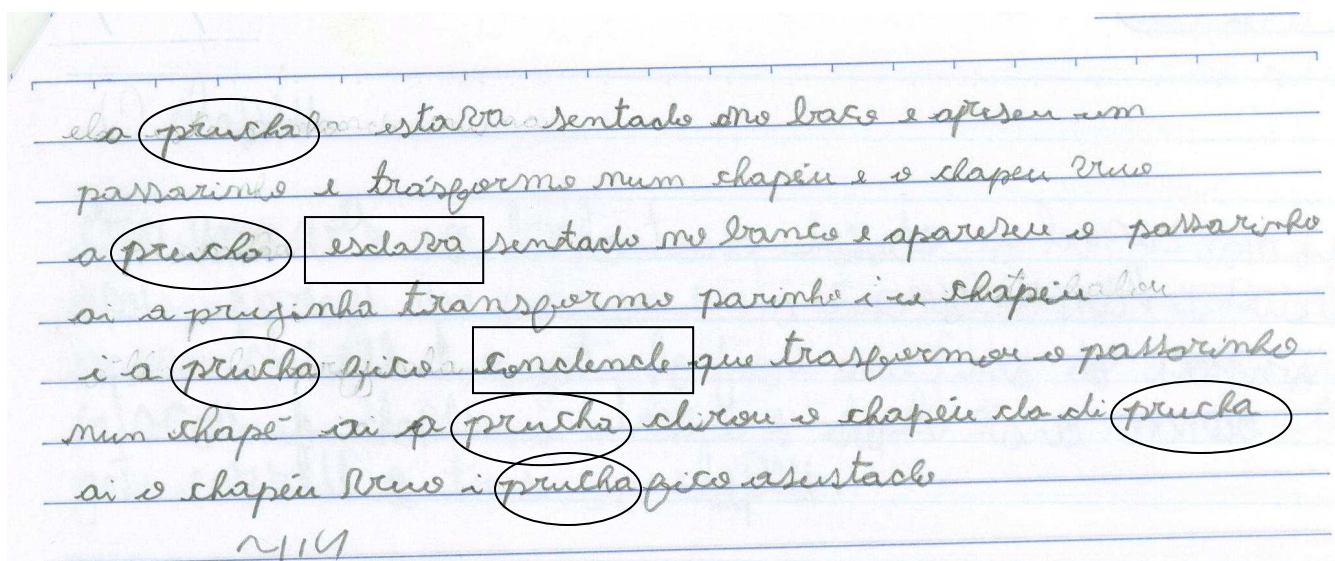 ela prucha estava sentado no baco e apreseu um
passarinho e trásformo num chapéu e o chapeu vruo
a prucha esdava sentado no banco e apareseu o passarinho
ai a pruginha transformo parinho i u chapéu
i a prucha fico condende que trasformou o passarinho
nun chapé ai a prucha dirou o chapéu da di prucha
ai o chapéu vruo i prucha fico asustado